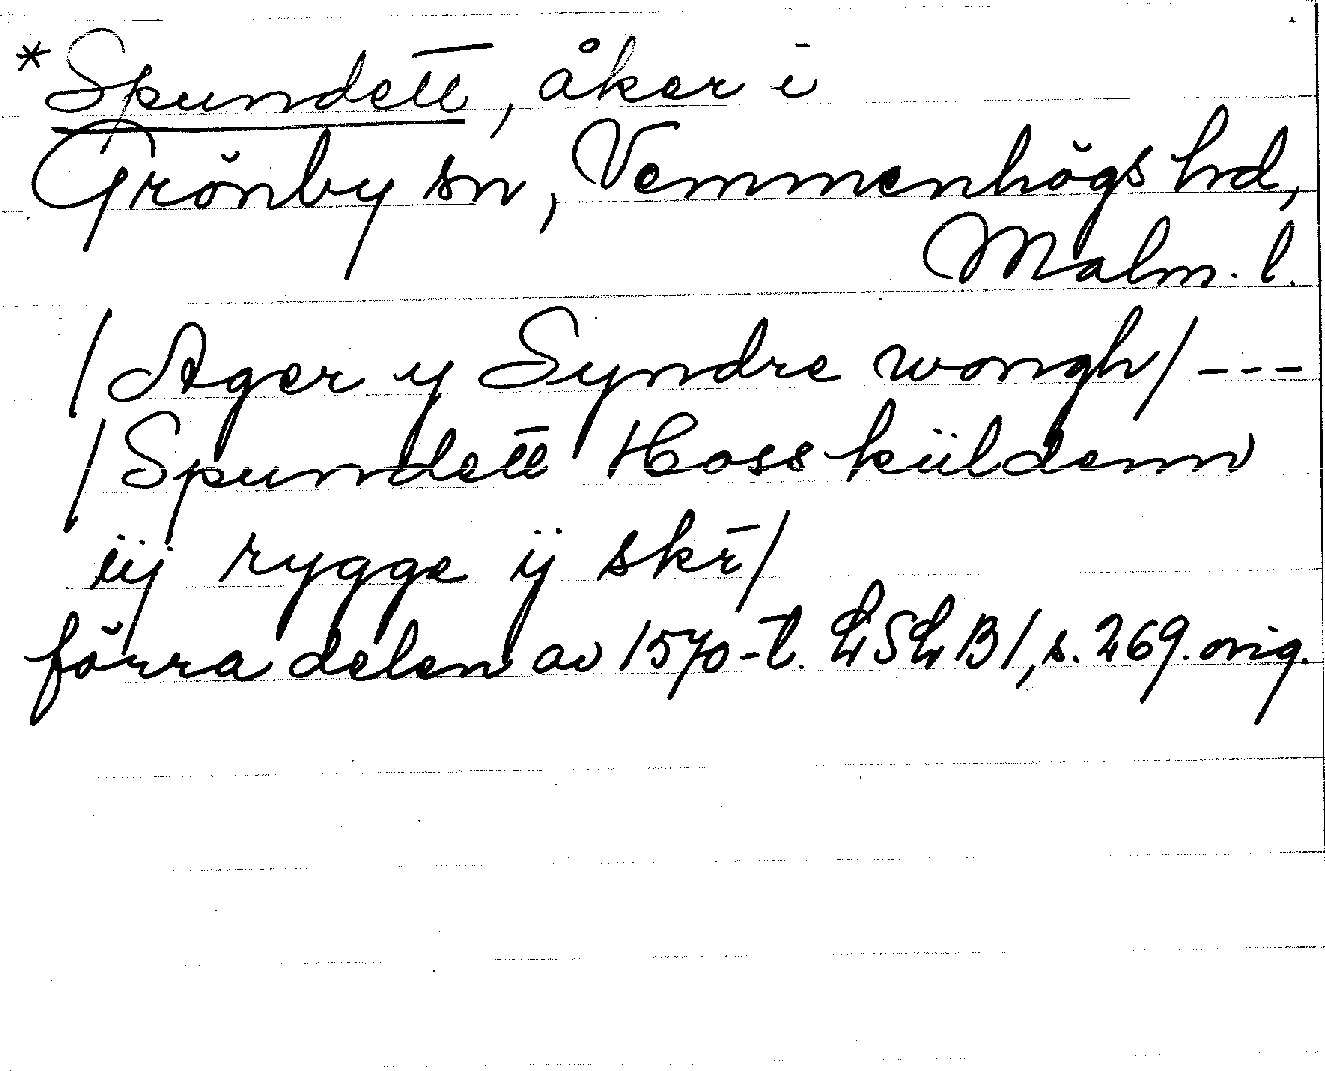 *Spundett, åker i
Grönby sn, Vemmenhögs hd,
Malm. l.
/Ager y Syndre wongh/ ---
/Spundett Hoss küldenn
iij rygge ij skr̄/
förra delen av 1570-t. LSLB1, s. 269. orig.